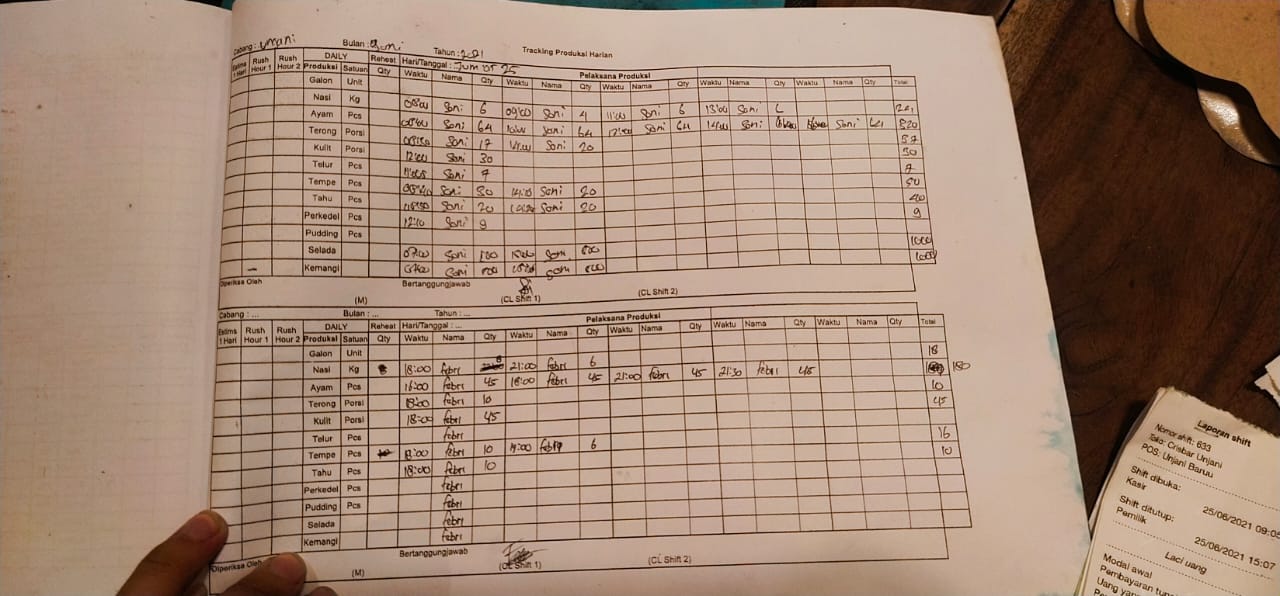 Tracking Produksi Harian
Cabang : Unjani Bulan : Juni Tahun : 2021
Estima 1 Hari Rush Hour 1 Rush Hour 2 DAILY Reheat Hari/Tanggal : Jum'at 25 Pelaksana Produksi
Produksi Satuan Qty Waktu Nama Qty Waktu Nama Qty Waktu Nama Qty Waktu Nama Qty Waktu Nama Qty Total
Galon Unit
Nasi Kg 08:00 Soni 6 09:00 Soni 4 11:00 Soni 6 13:00 Soni
Ayam Pcs Soni 64 10:00 Soni 64 12:00 Soni 64 14:00 Soni Soni 64 320
Terong Porsi Soni 17 14:00 Soni 20 37
Kulit Porsi 12:00 Soni 30 30
Telur Pcs Soni 7 7
Tempe Pcs Soni 30 14:10 Soni 20 50
Tahu Pcs Soni 20 Soni 20 40
Perkedel Pcs 12:10 Soni 9 9
Pudding Pcs
Selada 07:00 Soni Soni 1000
Kemangi 07:00 Soni Soni 1000
Diperiksa Oleh Bertanggungjawab
(M) (CL Shift 1) (CL Shift 2)
Cabang : ... Bulan : ... Tahun : ...
Estima 1 Hari Rush Hour 1 Rush Hour 2 DAILY Reheat Hari/Tanggal : ... Pelaksana Produksi
Produksi Satuan Qty Waktu Nama Qty Waktu Nama Qty Waktu Nama Qty Waktu Nama Qty Waktu Nama Qty Total
Galon Unit
Nasi Kg 18:00 febri 8 21:00 febri 6 18
Ayam Pcs 16:00 febri 45 18:00 febri 45 21:00 febri 45 21:30 febri 45 180
Terong Porsi 18:00 febri 10 10
Kulit Porsi 18:00 febri 45 45
Telur Pcs febri
Tempe Pcs 18:00 febri 10 febri 6 16
Tahu Pcs 18:00 febri 10 10
Perkedel Pcs febri
Pudding Pcs febri
Selada febri
Kemangi febri
Diperiksa Oleh Bertanggungjawab
(M) (CL Shift 1) (CL Shift 2)
Laporan shift
Nomor shift: 633
Toko: Crisbar Unjani
POS: Unjani Baruu
Shift dibuka:
25/06/2021 09:05
Kasir
Shift ditutup:
25/06/2021 15:07
Pemilik
Laci uang
Modal awal
Pembayaran